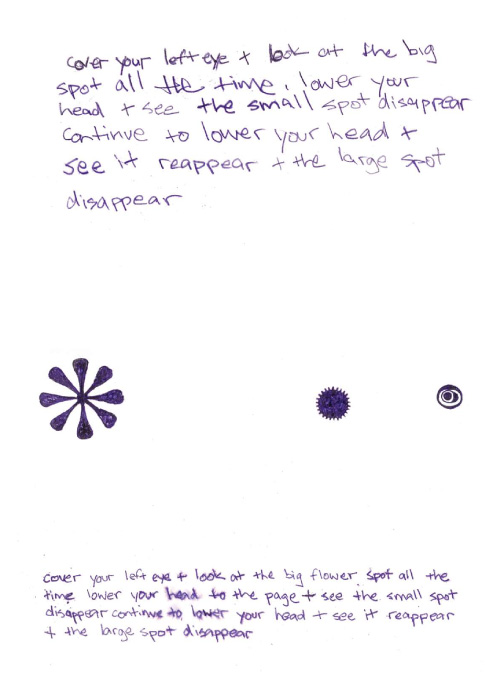 cover your left eye + look at the big
spot all the time. lower your
head + see the small spot disappear
continue to lower your head +
see it reappear + the large spot
disappear
cover your left eye + look at the big flower spot all the
time lower your head to the page + see the small spot
disappear continue to lower your head + see it reappear
+ the large spot disappear